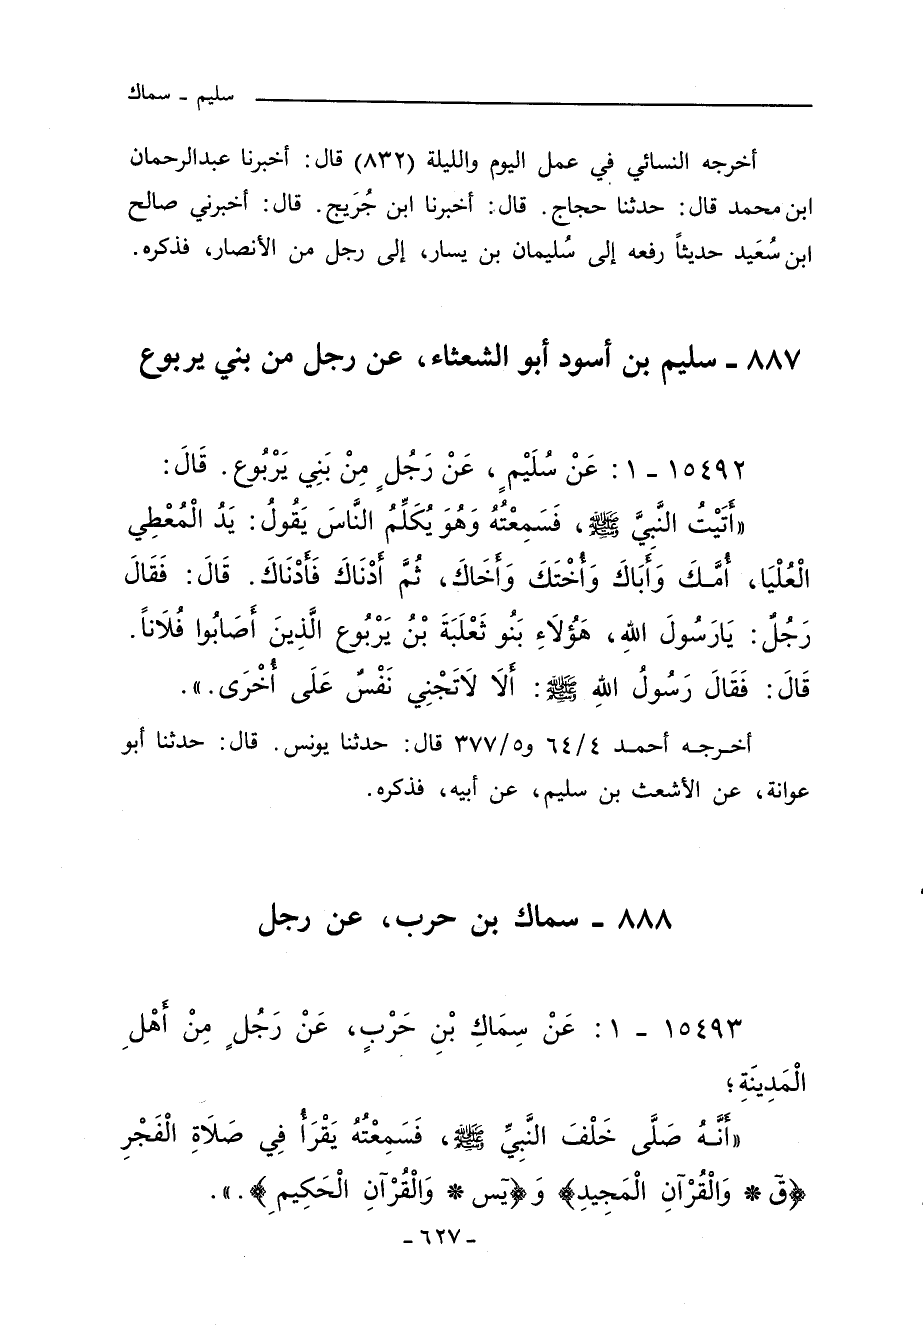 سليم ـ سماك
أخرجه النسائي في عمل اليوم والليلة (٨٣٢) قال: أخبرنا عبدالرحمان
ابن محمد قال: حدثنا حجاج. قال: أخبرنا ابن جُرَيج. قال: أخبرني صالح
ابن سُعَيد حديثاً رفعه إلى سُليمان بن يسار، إلى رجل من الأنصار، فذكره.
٨٨٧ ـ سليم بن أسود أبو الشعثاء، عن رجل من بني يربوع
١٥٤٩٢ ـ ١: عَنْ سُلَيْمٍ، عَنْ رَجُلٍ مِنْ بَنِي يَرْبُوع. قَالَ:
«أَتَيْتُ النَّبِيَّ ﷺ، فَسَمِعْتُهُ وَهُوَ يُكَلِّمُ النَّاسَ يَقُولُ: يَدُ الْمُعْطِي
الْعُلْيَا، أُمَّـكَ وَأَبَاكَ وَأُخْتَكَ وَأَخَاكَ، ثُمَّ أَدْنَاكَ فَأَدْنَاكَ. قَالَ: فَقَالَ
رَجُلٌ: يَارَسُولَ اللهِ، هَؤُلَاءِ بَنُو ثَعْلَبَةَ بْنُ يَرْبُوع الَّذِينَ أَصَابُوا فُلَاناً.
قَالَ: فَقَالَ رَسُولُ اللهِ ﷺ: أَلَا لَاتَجْنِي نَفْسٌ عَلَى أُخْرَى.».
أخـرجـه أحمـد ٦٤/٤ و٣٧٧/٥ قال: حدثنا يونس. قال: حدثنا أبو
عوانة، عن الأشعث بن سليم، عن أبيه، فذكره.
٨٨٨ ـ سماك بن حرب، عن رجل
١٥٤٩٣ ـ ١: عَنْ سِمَاكِ بْنِ حَرْبٍ، عَنْ رَجُلٍ مِنْ أَهْلِ
الْمَدِينَةِ؛
«أَنَّـهُ صَلَّى خَلْفَ النَّبِيِّ ﷺ، فَسَمِعْتُهُ يَقْرَأُ فِي صَلَاةِ الْفَجْرِ
﴿قَ * وَالْقُرْآنِ الْمَجِيدِ﴾ وَ﴿يَس * وَالْقُرْآنِ الْحَكِيمِ﴾.».
ـ ٦٢٧ ـ